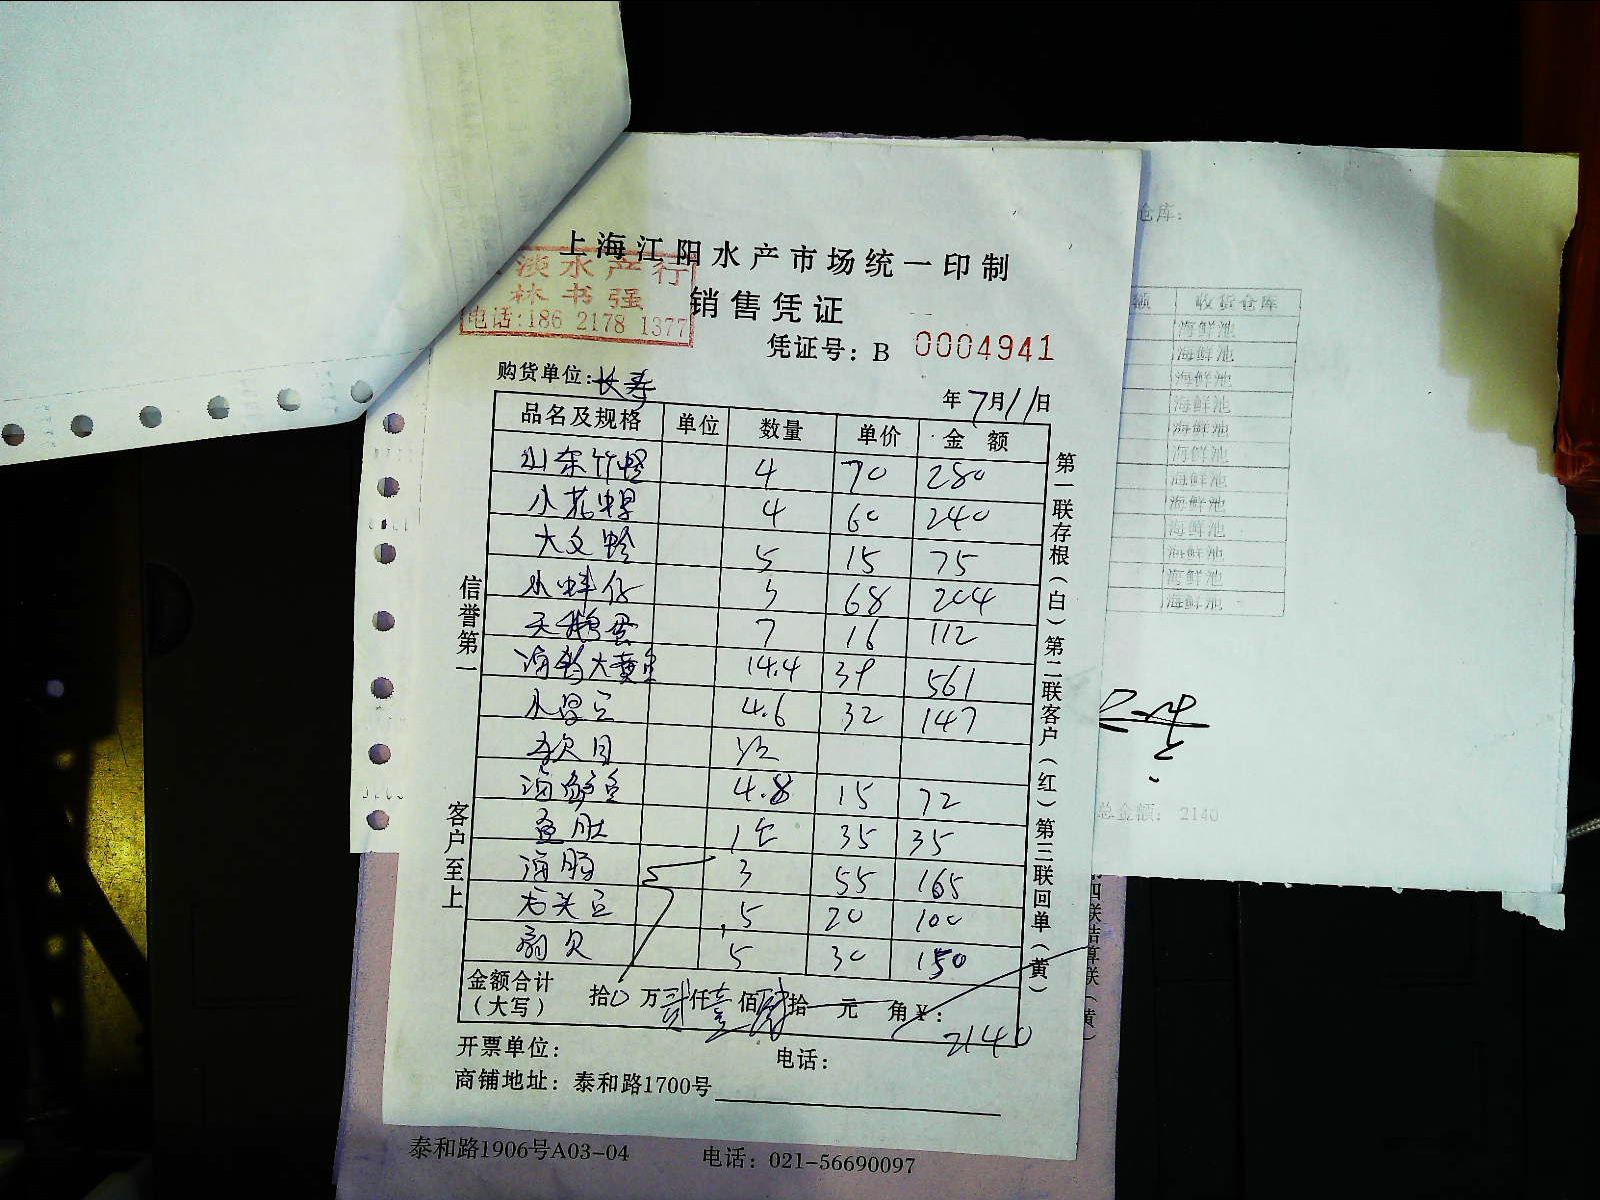 上海江阳水产市场统一印制
淡水产行
林书强
电话:186 2178 1377
销售凭证
凭证号：B 0004941
购货单位:长寿
年7月11日
品名及规格 单位 数量 单价 金额
山东竹蛏 4 70 280
小花 4 60 240
大文蛤 5 15 75
小蚌仔 3 68 204
天鹅蛋 7 16 112
大黄鱼 14.4 39 561
4.6 32 147
海鲈鱼 4.8 15 72
鱼肚 1 35 35
海肠 3 55 165
5 20 100
扇贝 5 30 150
金额合计
（大写） 拾0万贰仟壹佰肆拾 元 角￥：
2140
开票单位：
电话：
商铺地址：泰和路1700号
信誉第一
客户至上
第一联存根（白）第二联客户（红）第三联回单（黄）
仓库：
额 收货仓库
海鲜池
海鲜池
海鲜池
海鲜池
海鲜池
海鲜池
海鲜池
海鲜池
海鲜池
海鲜池
海鲜池
海鲜池
总金额：2140
四联结算联（黄）
泰和路1906号A03-04 电话：021-56690097